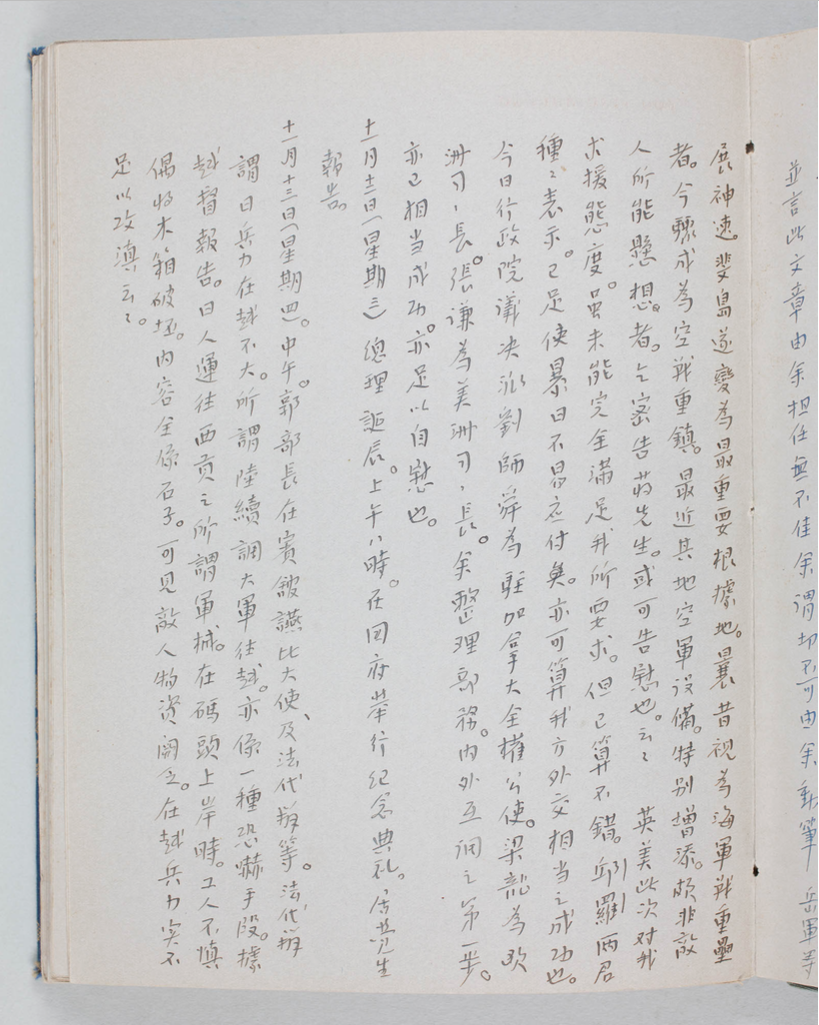 並言此文章由余担任無不佳余謂切不可由余動筆岳軍等
展神速。斐島遂變為最重要根據地。曩昔視為海軍戰重壘
者。今驟成為空戰重鎮。最近其地空軍設備。特別增添。頗非敵
人所能懸想者。乞密告蔣先生。或可告慰也。云々 英美此次対我
求援態度。虽未能完全滿足我所要求。但已算不錯。邱羅両君
種々表示。已足使暴日不易応付矣。亦可算我方外交相当之成功也。
今日行政院議決派劉師舜為駐加拿大全權公使。梁龍為欧
洲司々長。張謙為美洲司々長。余整理部務。内外互調之第一步。
亦已相当成功。亦足以自慰也。
十一月十二日(星期三)總理誕辰。上午八時。在囯府举行纪念典礼。居先生
報告。
十一月十三日(星期四)。中午。郭部長在賓館讌比大使、及法代辦等。法代辦
謂日兵力在越不大。所謂陸續調大軍往越。亦係一種恐嚇手段。據
越督報告。日人運往西貢之所謂軍械。在碼頭上岸時。工人不慎
偶將木箱破坯。内容全係石子。可見敵人物資闕乏。在越兵力实不
足以攻滇云々。